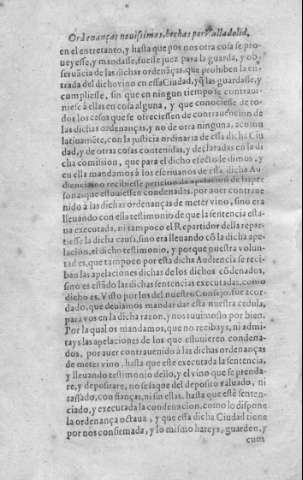 Ordenanças nouissimas, hechas por Valladolid,
en el entretanto, y hasta que por nos otra cosa se pro-
ueyesse, y mandasse, fuesse juez para la guarda, y ob-
seruãcia de las dichas ordenãças, que prohiben la en-
trada del dicho vino en essa Ciudad, y q̃ las guardasse, y
compliesse, sin que en ningun tiempo se contraui-
niesse à ellas en cosa alguna, y que conociesse de to-
dos los casos que se ofreciessen de contrauencion de
las dichas ordenanças, y no de otra ninguna, acomu
latiuamẽte, con la justicia ordinaria de essa dicha Ciu
dad, y de otras cosas contenidas, y declaradas en la di
cha comision, que para el dicho efecto le dimos, y en
ella mandamos à los escriuanos de essa dicha Au
diencia no recibiesse peticion de apelacion de las per
sonas que estouiessen condenadas, por auer contraue
nido à las dichas ordenanças de meter vino, sino era
lleuando con ella testimonio de que la sentencia esta-
ua executada, ni tampoco el Repartidor della repar-
tiesse la dicha causa, sino era lleuando cõ la dicha ape-
lacion, el dicho testimonio, y porque nuestra volun-
tad es, que tampoco por essa dicha Audiencia se reci-
ban las apelaciones dichas de los dichos cõdenados,
sino es estãdo las dichas sentencias executadas, como
dicho es. Visto por los del nuestro Consejo, fue acor-
dado, que deuiamos mandar dar esta nuestra cedula,
para vos en la dicha razon, y nos tuuimoslo por bien.
Por la qual os mandamos, que no recibays, ni admi-
tays las apelaciones de los que estuuieren condena-
dos, por auer contrauenido à las dichas ordenanças
de meter vino, hasta que este executada la sentencia,
y lleuando testimonio dello, y el vino que se prenda-
re, y depositare, no se saque del deposito rasuado, ni
tassado, con fianças, ni sin ellas, hasta que estè senten-
ciado, y executada la condenacion, como lo dispone
la ordenança octaua, y que essa dicha Ciudad tiene
por nos confirmada, y lo mismo hareys, guarden, y
cum